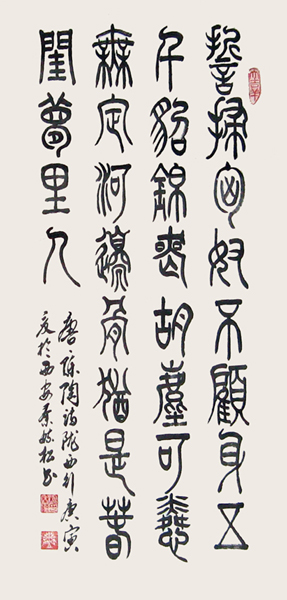 誓掃匈奴不顧身五
千貂錦喪胡塵可憐
無定河邊骨猶是春
閨夢里人
唐陳陶詩隴西行庚寅
夏於西安